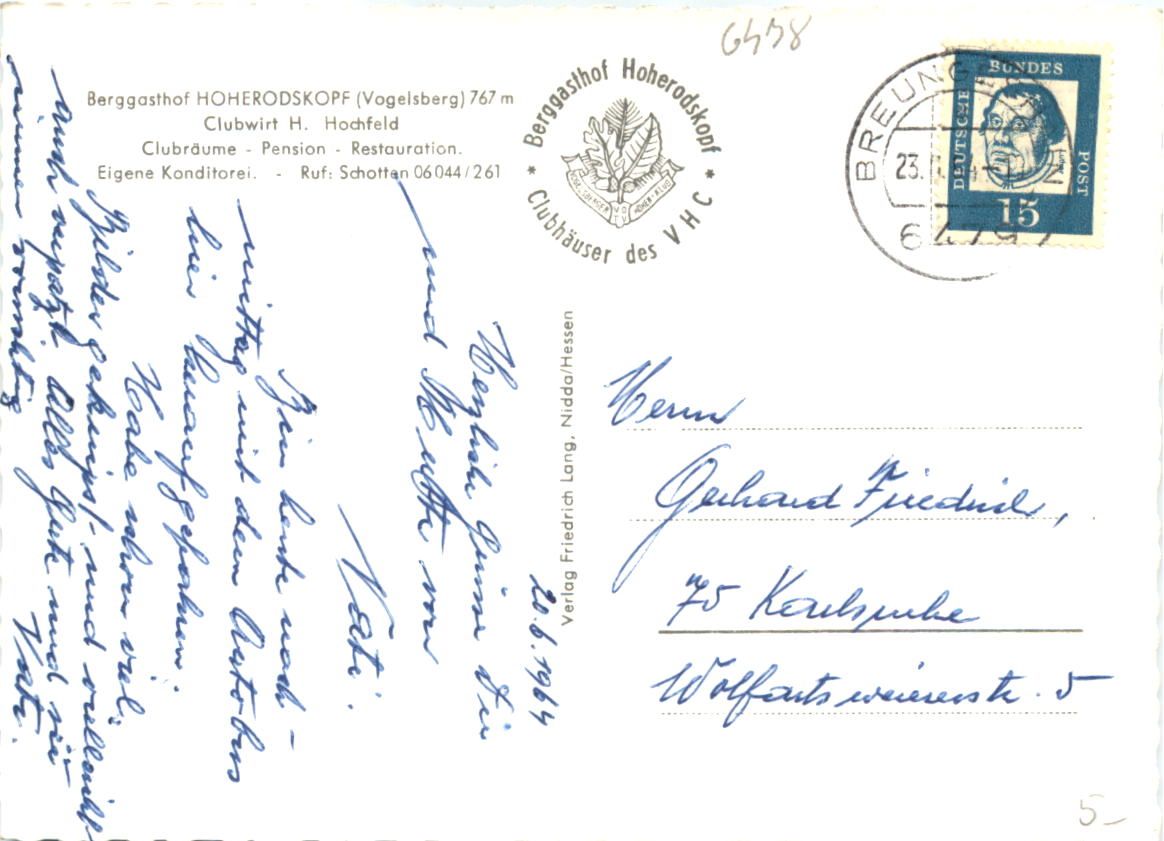 6478
Berggasthof HOHERODSKOPF (Vogelsberg) 767 m
Clubwirt H. Hochfeld
Clubräume - Pension - Restauration.
Eigene Konditorei. - Ruf: Schotten 06044/261
* Berggasthof Hoherodskopf *
Clubhäuser des VHC
VOGELSBERGER HÖHEN-KLUB
BREUNG
23.
6479
DEUTSCHE BUNDES POST
15
20.6.1964
Herzliche Grüsse Dir
und Mutti von
Vati.
Bin heute nach-
mittag mit dem Autobus
hier heraufgefahren.
Habe schon viel
Bilder geknipst und vielleicht
auch verpatzt. Alles Gute und sei
immer vorsichtig
Vati.
Verlag Friedrich Lang, Nidda/Hessen
Herrn
Gerhard Friedrich,
75 Karlsruhe
Wolfartsweiererstr. 5
5-